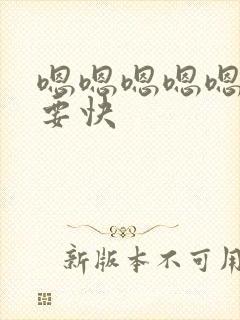 嗯嗯嗯嗯嗯
要快
新版本不可用